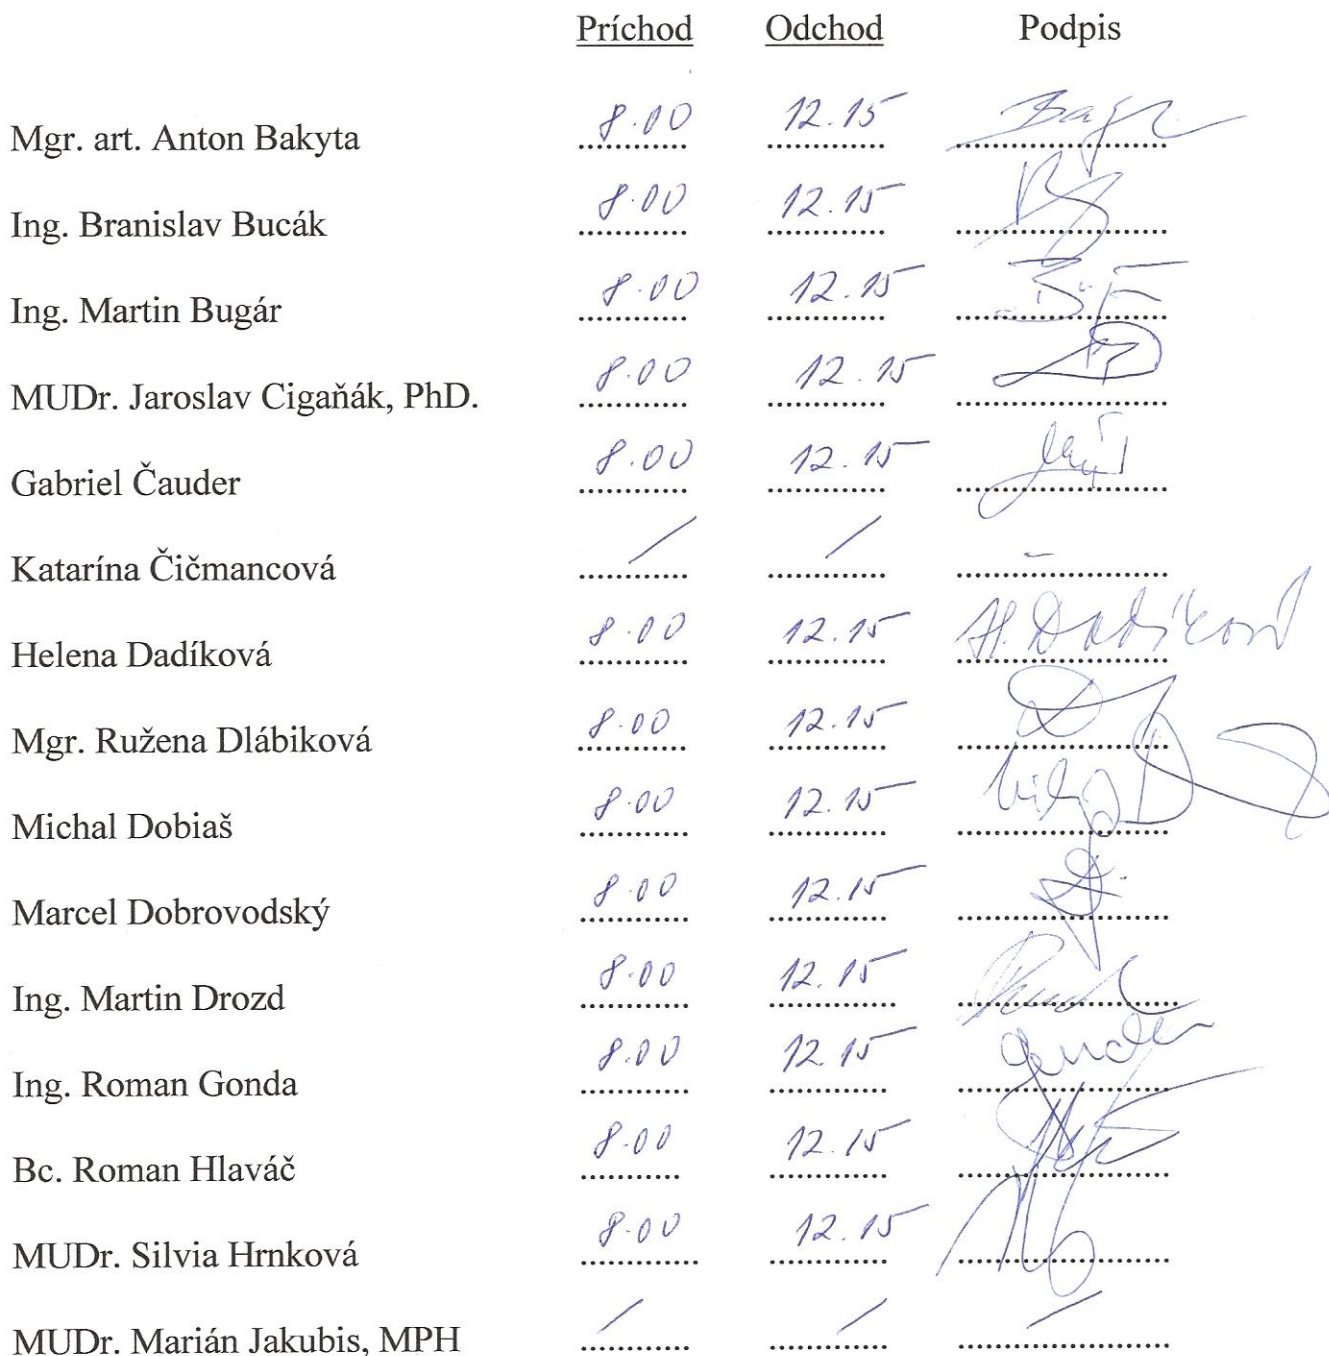 Príchod Odchod Podpis
Mgr. art. Anton Bakyta 8.00 12.15
Ing. Branislav Bucák 8.00 12.15
Ing. Martin Bugár 8.00 12.15
MUDr. Jaroslav Cigaňák, PhD. 8.00 12.15
Gabriel Čauder 8.00 12.15
Katarína Čičmancová / / -
Helena Dadíková 8.00 12.15 H. Dadíková
Mgr. Ružena Dlábiková 8.00 12.15
Michal Dobiaš 8.00 12.15
Marcel Dobrovodský 8.00 12.15
Ing. Martin Drozd 8.00 12.15
Ing. Roman Gonda 8.00 12.15
Bc. Roman Hlaváč 8.00 12.15
MUDr. Silvia Hrnková 8.00 12.15
MUDr. Marián Jakubis, MPH / / /